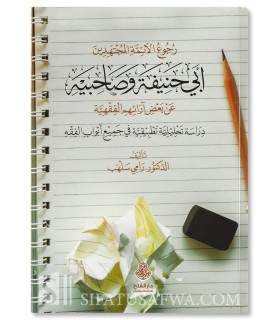 رجوع الأئمة المجتهدين
أبي حنيفة وصاحبيه
عن بعض آرائهم الفقهية
دراسة تحليلية تطبيقية في جميع أبواب الفقه
تأليف
الدكتور رامي سلهب
دار الفتح
SIFATUSAFWA.COM